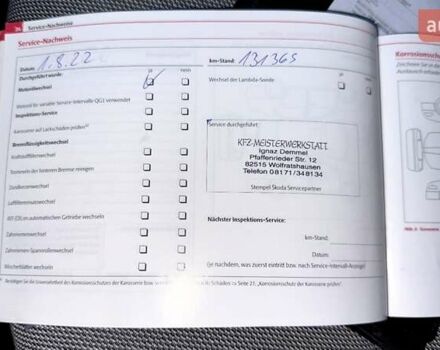 Service-Nachweise
Service-Nachweis
Datum: 1.8.22
km-Stand: 131365
Durchgeführt wurde: ja nein
ja nein
Motorölwechsel
Wechsel der Lambda-Sonde
Motoröl für variable Service-Intervalle QG1 verwendet
Inspektions-Service
Karosserie auf Lackschäden prüfen
Bremsflüssigkeitswechsel
Kraftstofffilterwechsel
Trommeln der hinteren Bremse reinigen
Zündkerzenwechsel
Luftfiltereinsatzwechsel
ATF (Öl) im automatischen Getriebe wechseln
Zahnriemenwechsel
Zahnriemen-Spannrollenwechsel
Wischerblätter wechseln
Service durchgeführt:
KFZ-MEISTERWERKSTATT
Ignaz Demmel
Pfaffenrieder Str. 12
82515 Wolfratshausen
Telefon 08171/348134
Stempel Škoda Servicepartner
Nächster Inspektions-Service:
km-Stand:
Datum:
(je nachdem, was zuerst eintritt bzw. nach Service-Intervall-Anzeige)
Korrosionsschu